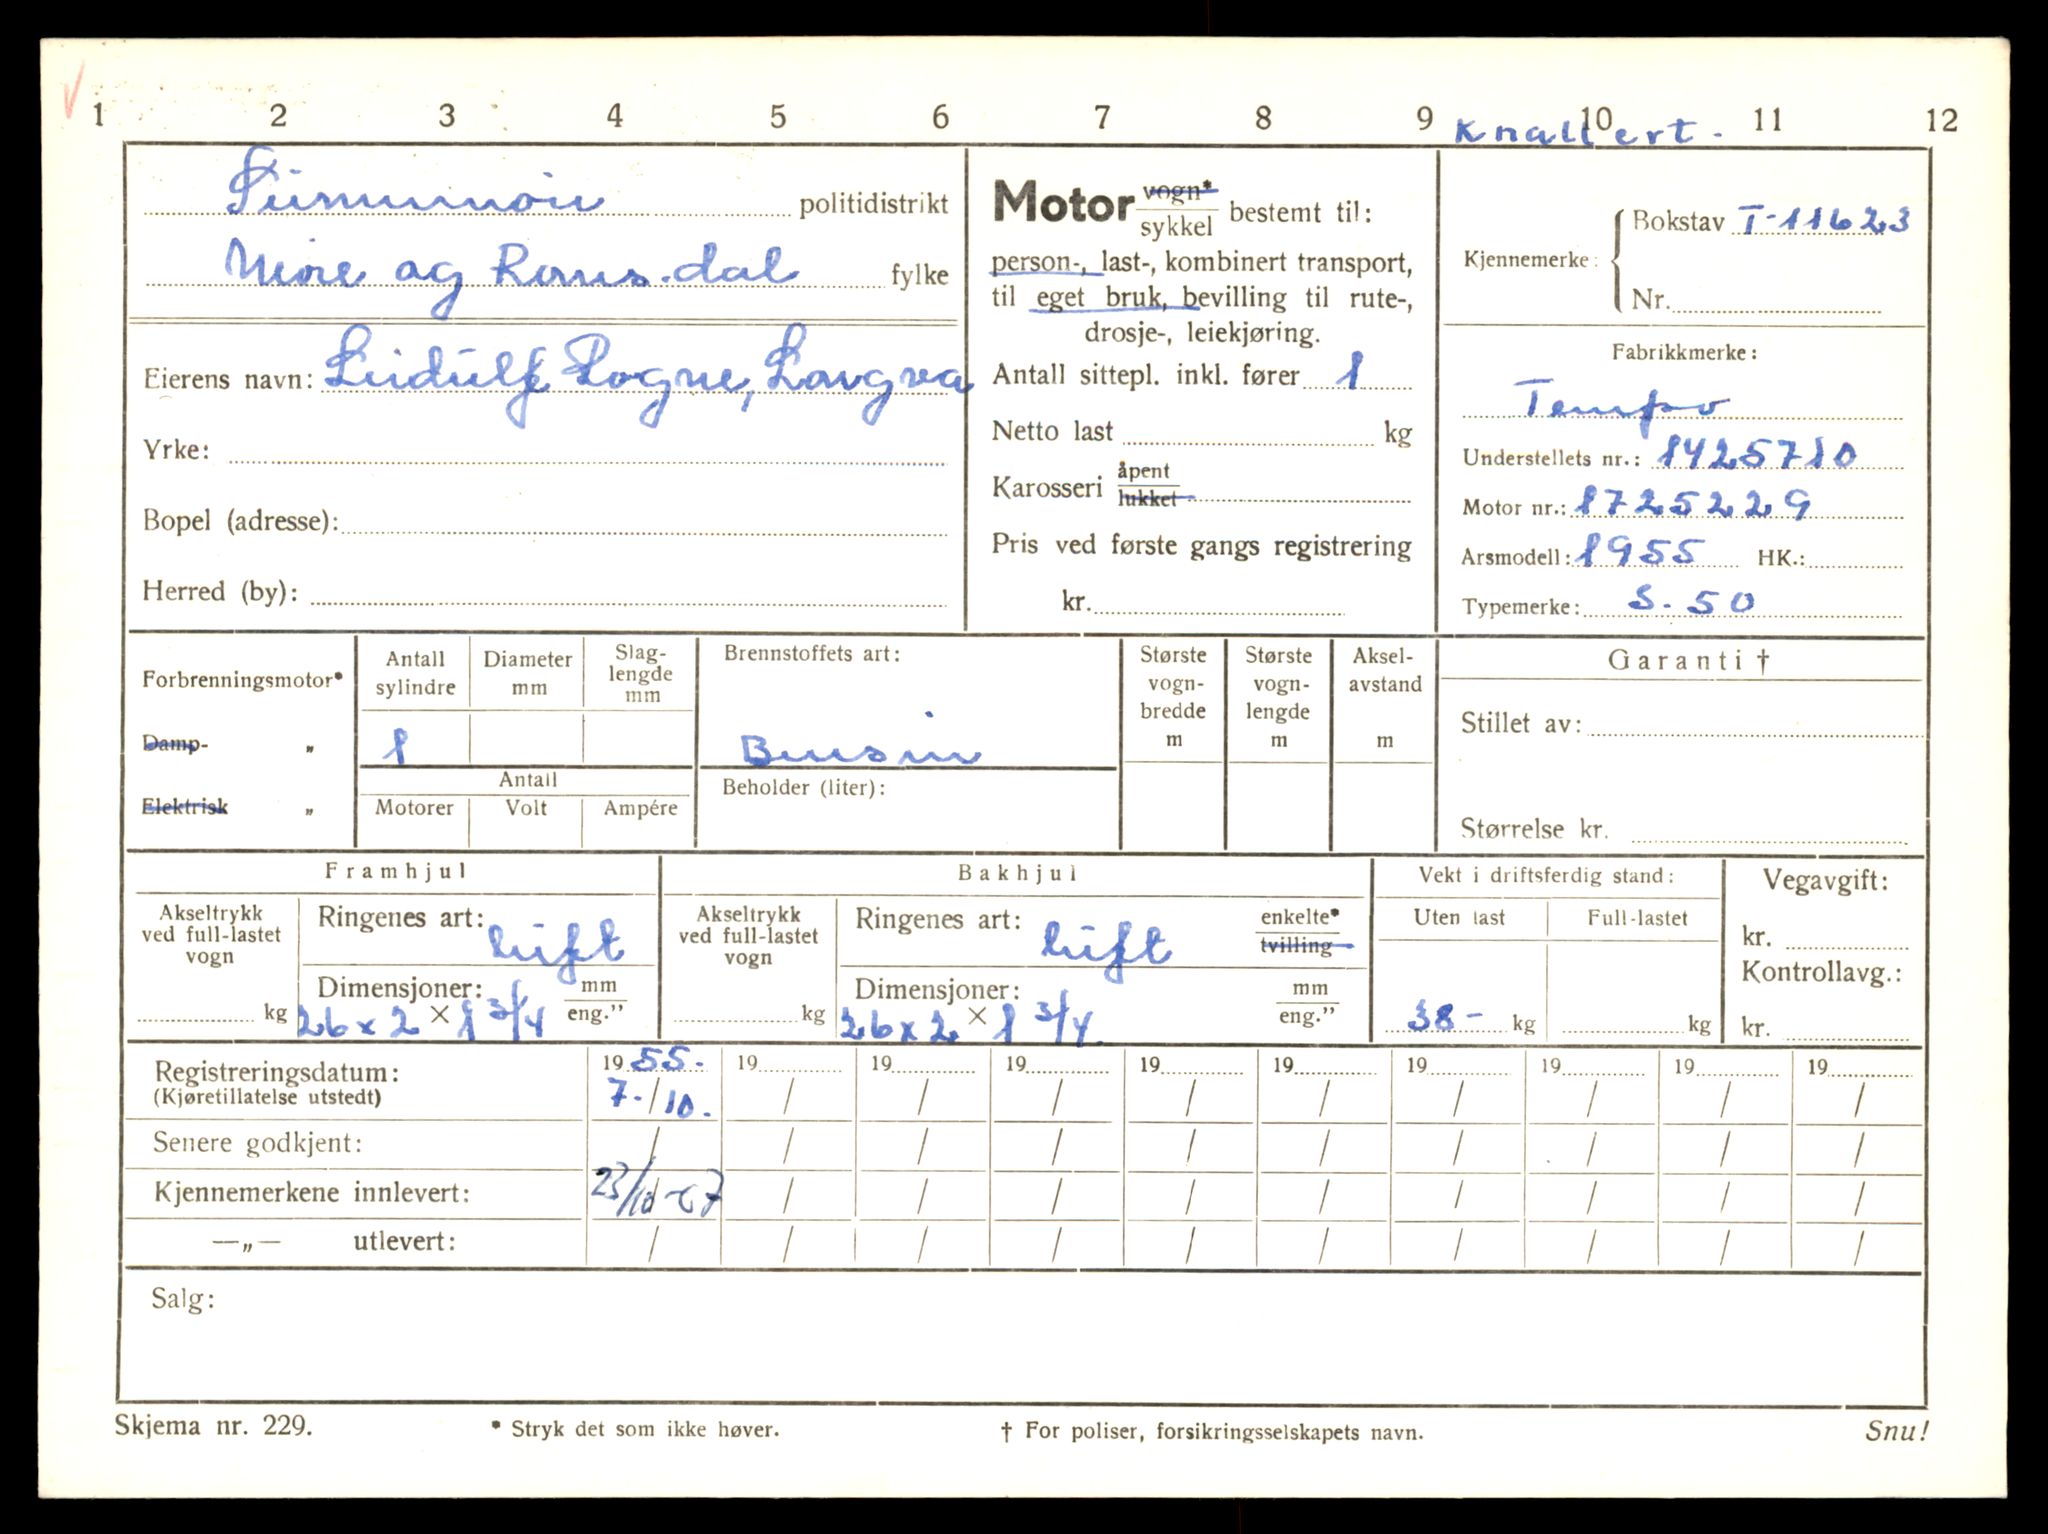 1 2 3 4 5 6 7 8 9 10 11 12
Knallert.
Sunnmøre politidistrikt
Møre og Romsdal fylke
Eierens navn: Liidulf Rogne, Longva
Yrke:
Bopel (adresse):
Herred (by):
Motor vogn* sykkel bestemt til:
person-, last-, kombinert transport,
til eget bruk, bevilling til rute-,
drosje-, leiekjøring.
Antall sittepl. inkl. fører 1
Netto last kg
Karosseri åpent lukket
Pris ved første gangs registrering
kr.
Kjennemerke: Bokstav T-11623
Nr.
Fabrikkmerke:
Tempo
Understellets nr.: 1425710
Motor nr.: 1725229
Arsmodell: 1955 HK.:
Typemerke: S-50
Forbrenningsmotor*
Damp- „
Elektrisk „
Antall sylindre
Diameter mm
Slag-
lengde
mm
1
Antall
Motorer Volt Ampére
Brennstoffets art:
Bensin
Beholder (liter):
Største
vogn-
bredde
m
Største
vogn-
lengde
m
Aksel-
avstand
m
Garanti †
Stillet av:
Størrelse kr.
Framhjul
Akseltrykk
ved full-lastet
vogn
kg
Ringenes art: luft
Dimensjoner: mm eng.”
26 x 2 × 1 3/4
Bakhjul
Akseltrykk
ved full-lastet
vogn
kg
Ringenes art: luft enkelte* tvilling
Dimensjoner: mm eng.”
26 x 2 × 1 3/4.
Vekt i driftsferdig stand:
Uten last Full-lastet
38- kg kg
Vegavgift:
kr.
Kontrollavg.:
kr.
Registreringsdatum: 1955. 19 19 19 19 19 19 19 19 19
(Kjøretillatelse utstedt) 7./10. / / / / / / / / /
Senere godkjent: / / / / / / / / / /
Kjennemerkene innlevert: 23/10-67 / / / / / / / / /
—„— utlevert: / / / / / / / / / /
Salg:
Skjema nr. 229. * Stryk det som ikke høver. † For poliser, forsikringsselskapets navn. Snu!